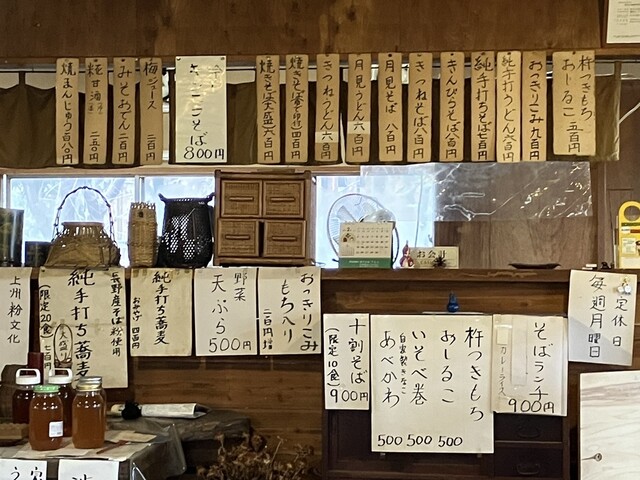 杵つきもち
おしるこ 五百円
おっきりこみ 九百円
純手打うどん 六百円
純手打ちそば 七百円
きんぴらそば 八百円
きつねそば 八百円
月見そば 八百円
月見うどん 六百円
きつねうどん 六百円
焼きそば 四百円
焼きそば(大盛)六百円
きのこそば
800円
梅ジュース 二百円
みそおでん 二百円
糀甘酒 二五〇円
焼まんじゅう 二百八〇円
お会計
定休日
毎週月曜日
そばランチ
カレーライス
900円
杵つきもち
おしるこ
いそべ巻
自家製きなこ
あべかわ
500 500 500
十割そば
(限定10食)
900円
おっきりこみ
もち入り
二百円増
野菜
天ぷら
500円
純手打ち蕎麦
おみやげ 四百円
長野産そば粉使用
純手打ち蕎麦
(限定20食)
大盛り
上州粉文化